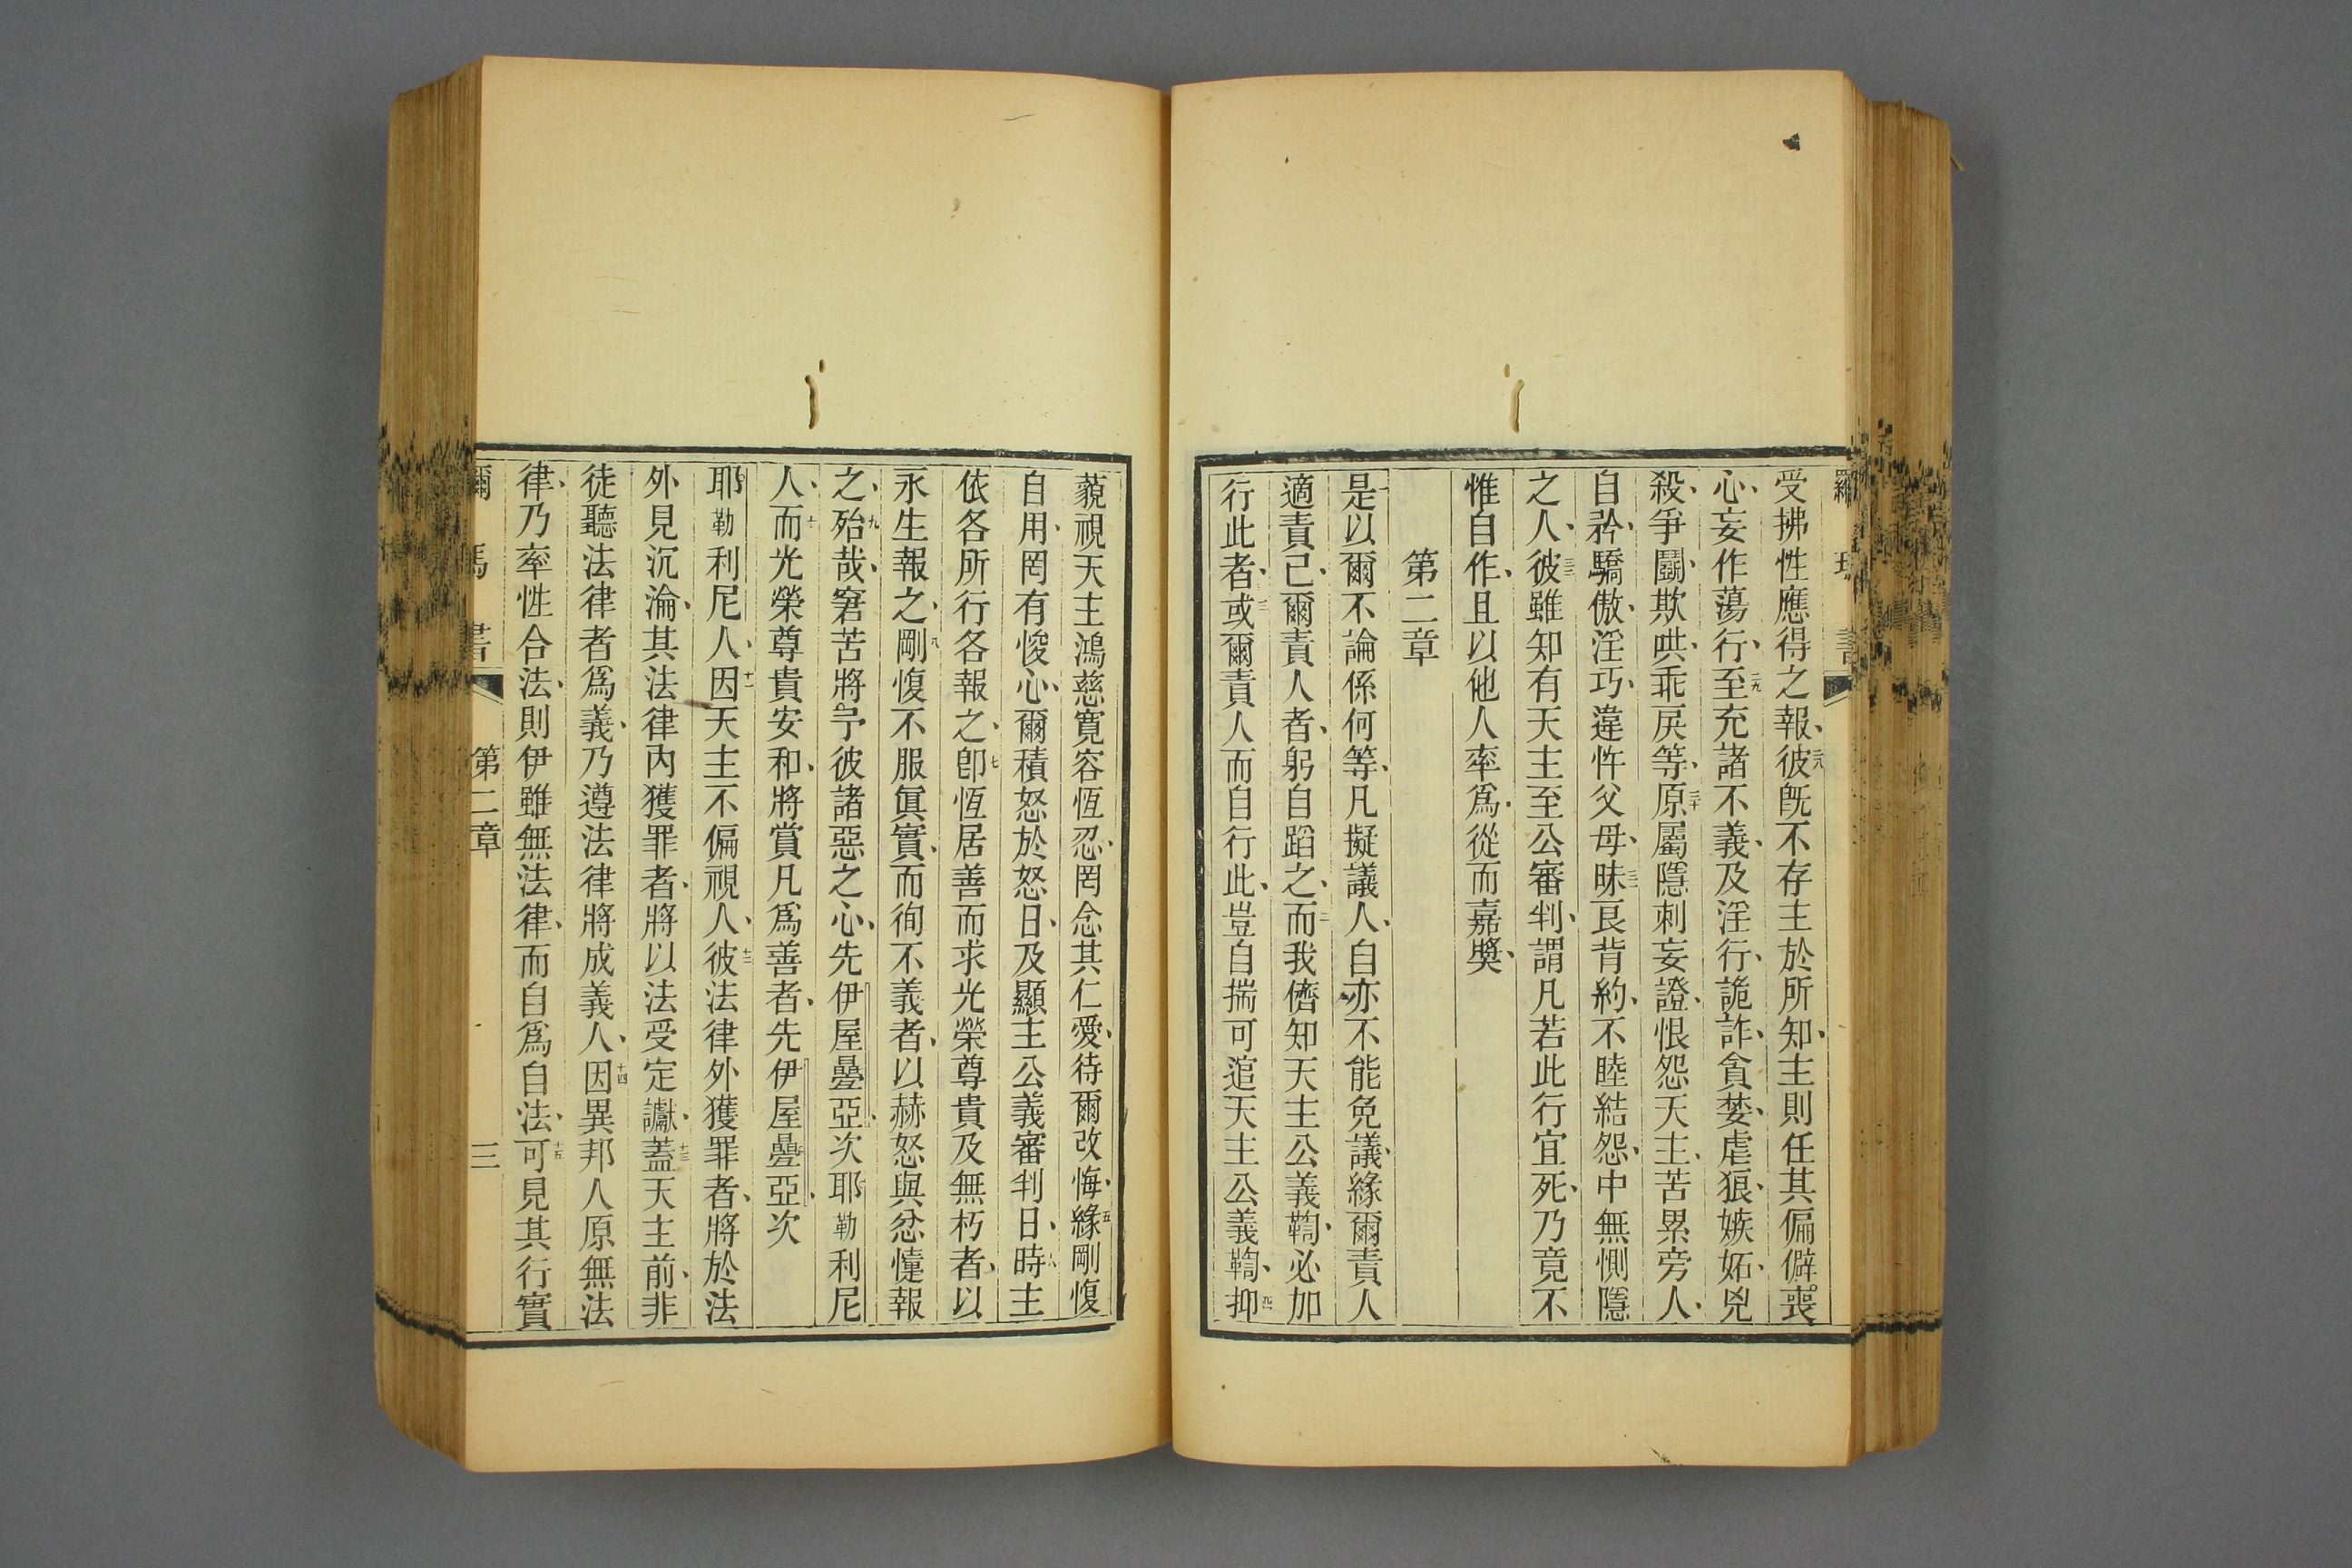 受拂性應得之報、彼旣不存主於所知、主則任其偏僻。喪
心、妄作蕩行、至充諸不義、及淫行、詭詐、貪婪、虐狼、嫉妬、兇
殺、爭鬪、欺哄、乖戾等、原屬隱刺妄證、恨怨天主、苦累旁人、
自矜、驕傲、淫巧、違忤父母、昧良背約、不睦結怨、中無惻隱
之人、彼雖知有天主至公審判、謂凡若此行宜死、乃竟不
惟自作、且以他人率爲、從而嘉奬、
第二章
是以爾不論係何等、凡擬議人、自亦不能免議、緣爾責人
適責己、爾責人者、躬自蹈之、而我儕知天主公義鞫、必加
行此者、或爾責人而自行此、豈自揣可逭天主公義鞫、抑
藐視天主鴻慈寬容恆忍、罔念其仁愛、待爾改悔、緣剛愎
自用、罔有悛心、爾積怒於怒日、及顯主公義審判日、時主
依各所行各報之、卽恆居善而求光榮尊貴及無朽者、以
永生報之、剛愎不服眞實、而徇不義者、以赫怒與忿懥報
之、殆哉、窘苦將予彼諸惡之心、先伊屋疊亞、次耶勒利尼
人、而光榮尊貴安和、將賞凡爲善者、先伊屋疊亞、次
耶勒利尼人、因天主不偏視人、彼法律外獲罪者、將於法
外見沉淪、其法律內獲罪者、將以法受定讞、蓋天主前、非
徒聽法律者爲義、乃遵法律將成義人、因異邦人原無法
律、乃率性合法、則伊雖無法律、而自爲自法、可見其行實
第二章
三